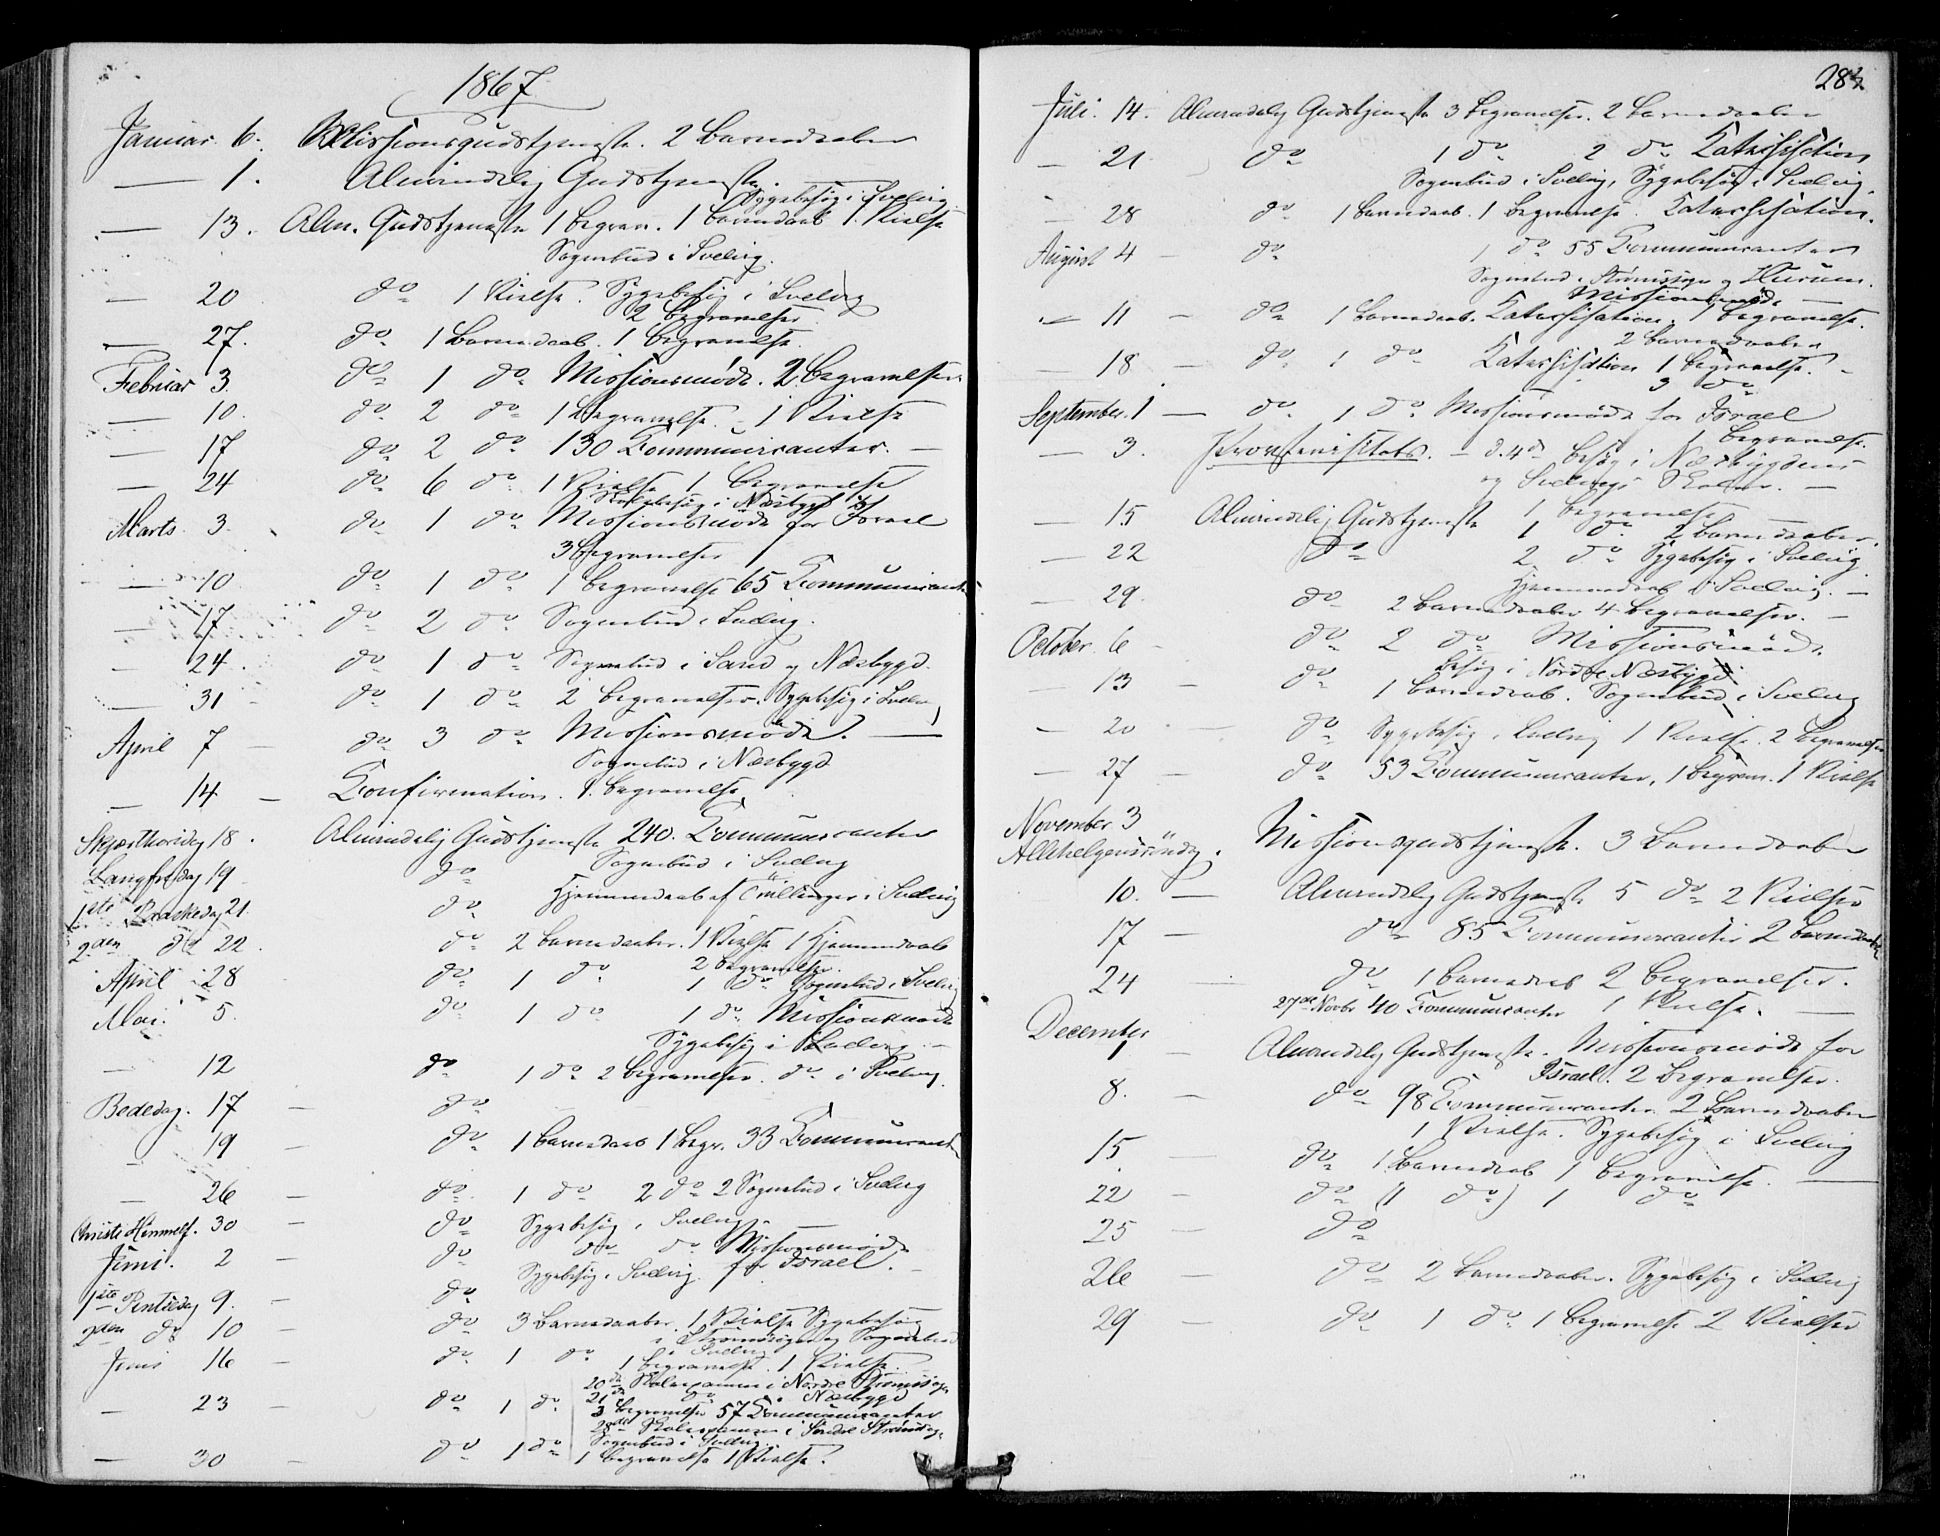 1867
Januar 6. Missionsgudstjeneste. 2 Barnedaaber
— 1. Almindelig Gudstjeneste.
Sygebesøg i Svelvig
— 13. Alm. Gudstjeneste 1 begrav. 1 barnedaab 1 Vielse
Sognebud i Svelvig.
— 20 do 1 Vielse. Sygebesøg i Svelvig
2 begravelser
— 27. do 1 Barnedaab. 1 begravelse.
Februar 3. do 1 do Missionsmøde. 2 begravelser.
— 10. do 2 do 1 begravelse. 1 Vielse
— 17 do 2 do 130 Communicanter. —
— 24 do 6 do 1 Vielse 1 begravelse
Skolebesøg i Næsbygd
Marts 3. do 1 do Missionsmøde for Israel
3 begravelser
— 10. do 1 do 1 begravelse 65 Communicant
— 17 do 2 do Sognebud i Svelvig.
— 24. do 1 do Sognebud i Sand og Næsbygd.
— 31 do 1 do 2 begravelser. Sygebesøg i Svelv
April 7 — do 3 do Missionsmøde. —
Sognebud i Næsbygd
— 14 — Confirmation. 1. begravelse
Skjærthorsdag 18. Almindelig Gudstjeneste 240. Communicanter
Sognebud i Svelvig
Langfredag 19 do
Hjemmedaab af Tvillinger i Svelvig
1ste Paaskedag 21. do
2den do 22. do 2 barnedaaber. 1 Vielse 1 Hjemmedaab
2 begravelser.
April 28 do 1 do 1 do Sognebud i Svelvig
Mai. 5. do 1 do 1 do Missionsmøde
Sygebesøg i Svelvig —
— 12 do 1 do 2 begravelser. do i Svelvig.
Bededag. 17 — do
— 19 — do 1 barnedaab 1 begr. 33 Communicant
— 26 — do 1 do 2 do 2 Sognebud i Svelvig
Christi Himmelf. 30 — do Sygebesøg i Svelvig. —
Juni. 2 — do do do Missionsmøde
Sygebesøg i Svelvig. for Israel. —
1ste Pintsedag 9. — do
2den do 10 — do 3 Barnedaaber. 1 Vielse Sygebesøg
i Strømssogn og Sognebud
i Svelvig
Juni 16 — do 1 do 1 begravelse. 1 Vielse.
20de Skolexamen i Nordre Strømssogn
21de do i Næsbygd
— 23 — do 1 do 3 begravelser 57 Communicanter
28de Skolexamen i Søndre Strømssogn
Sognebud i Svelvig.
— 30 — do 1 do 1 begravelse 1 Vielse.
282
Juli. 14. Almindelig Gudstjeneste 3 begravelser. 2 barnedaaber
— 21 do 1 do 2 do Katechisation
Sognebud i Svelvig, Sygebesøg i Svelvig.
— 28 do 1 barnedaab. 1 begravelse. Katechisation.
August 4 — do 1 do 55 Communicanter
Sognebud i Strømssogn og Hurum.
Missionsmøde —
— 11 — do 1 barnedaab. Katechisation. 1 begravelse.
2 barnedaaber
— 18 — do 1 do Katechisation 1 begravelse. —
3 do
September. 1 — do 1 do Missionsmøde for Israel
1 begravelse.
— 3. Provstevisitats. — d. 4de besøg i Næsbygdens
og Svelvigs Skoler. —
— 15 Almindelig Gudstjeneste 1 begravelse
1 do 2 barnedaaber.
— 22 do 2 do Sygebesøg i Svelvig
Hjemmedaab i Svelvig. —
— 29. do 2 barnedaaber 4 begravelser. —
October. 6 — do 2 do Missionsmøde.
besøg i Nordre Næsbygd
— 13 — do 1 barnedaab. Sognebud i Svelvig
— 20 — do Sygebesøg i Svelvig 1 Vielse. 2 begravelser
— 27 — do 53 Communicanter, 1 begrav. 1 Vielse
November 3
Allehelgenssøndag. Missionsgudstjeneste. 3 Barnedaaber
10. — Almindelig Gudstjeneste 5 do 2 Vielser
17 — do 85 Communicanter 2 barnedaaber
24 — do 1 barnedaab 2 begravelser.
27de Novbr 40 Communicanter 1 Vielse. —
December
1 — Almindelig Gudstjeneste. Missionsmøde for
Israel. 2 begravelser.
8. — do 98 Communicanter. 2 Barnedaaber
1 Vielse. Sygebesøg i Svelvig
15. — do 1 Barnedaab 1 begravelse. —
22 — do (1 do) 1 do
25 — do
26 — do 2 barnedaaber. Sygebesøg i Svelvig
29 — do 1 do 1 begravelse 2 Vielser